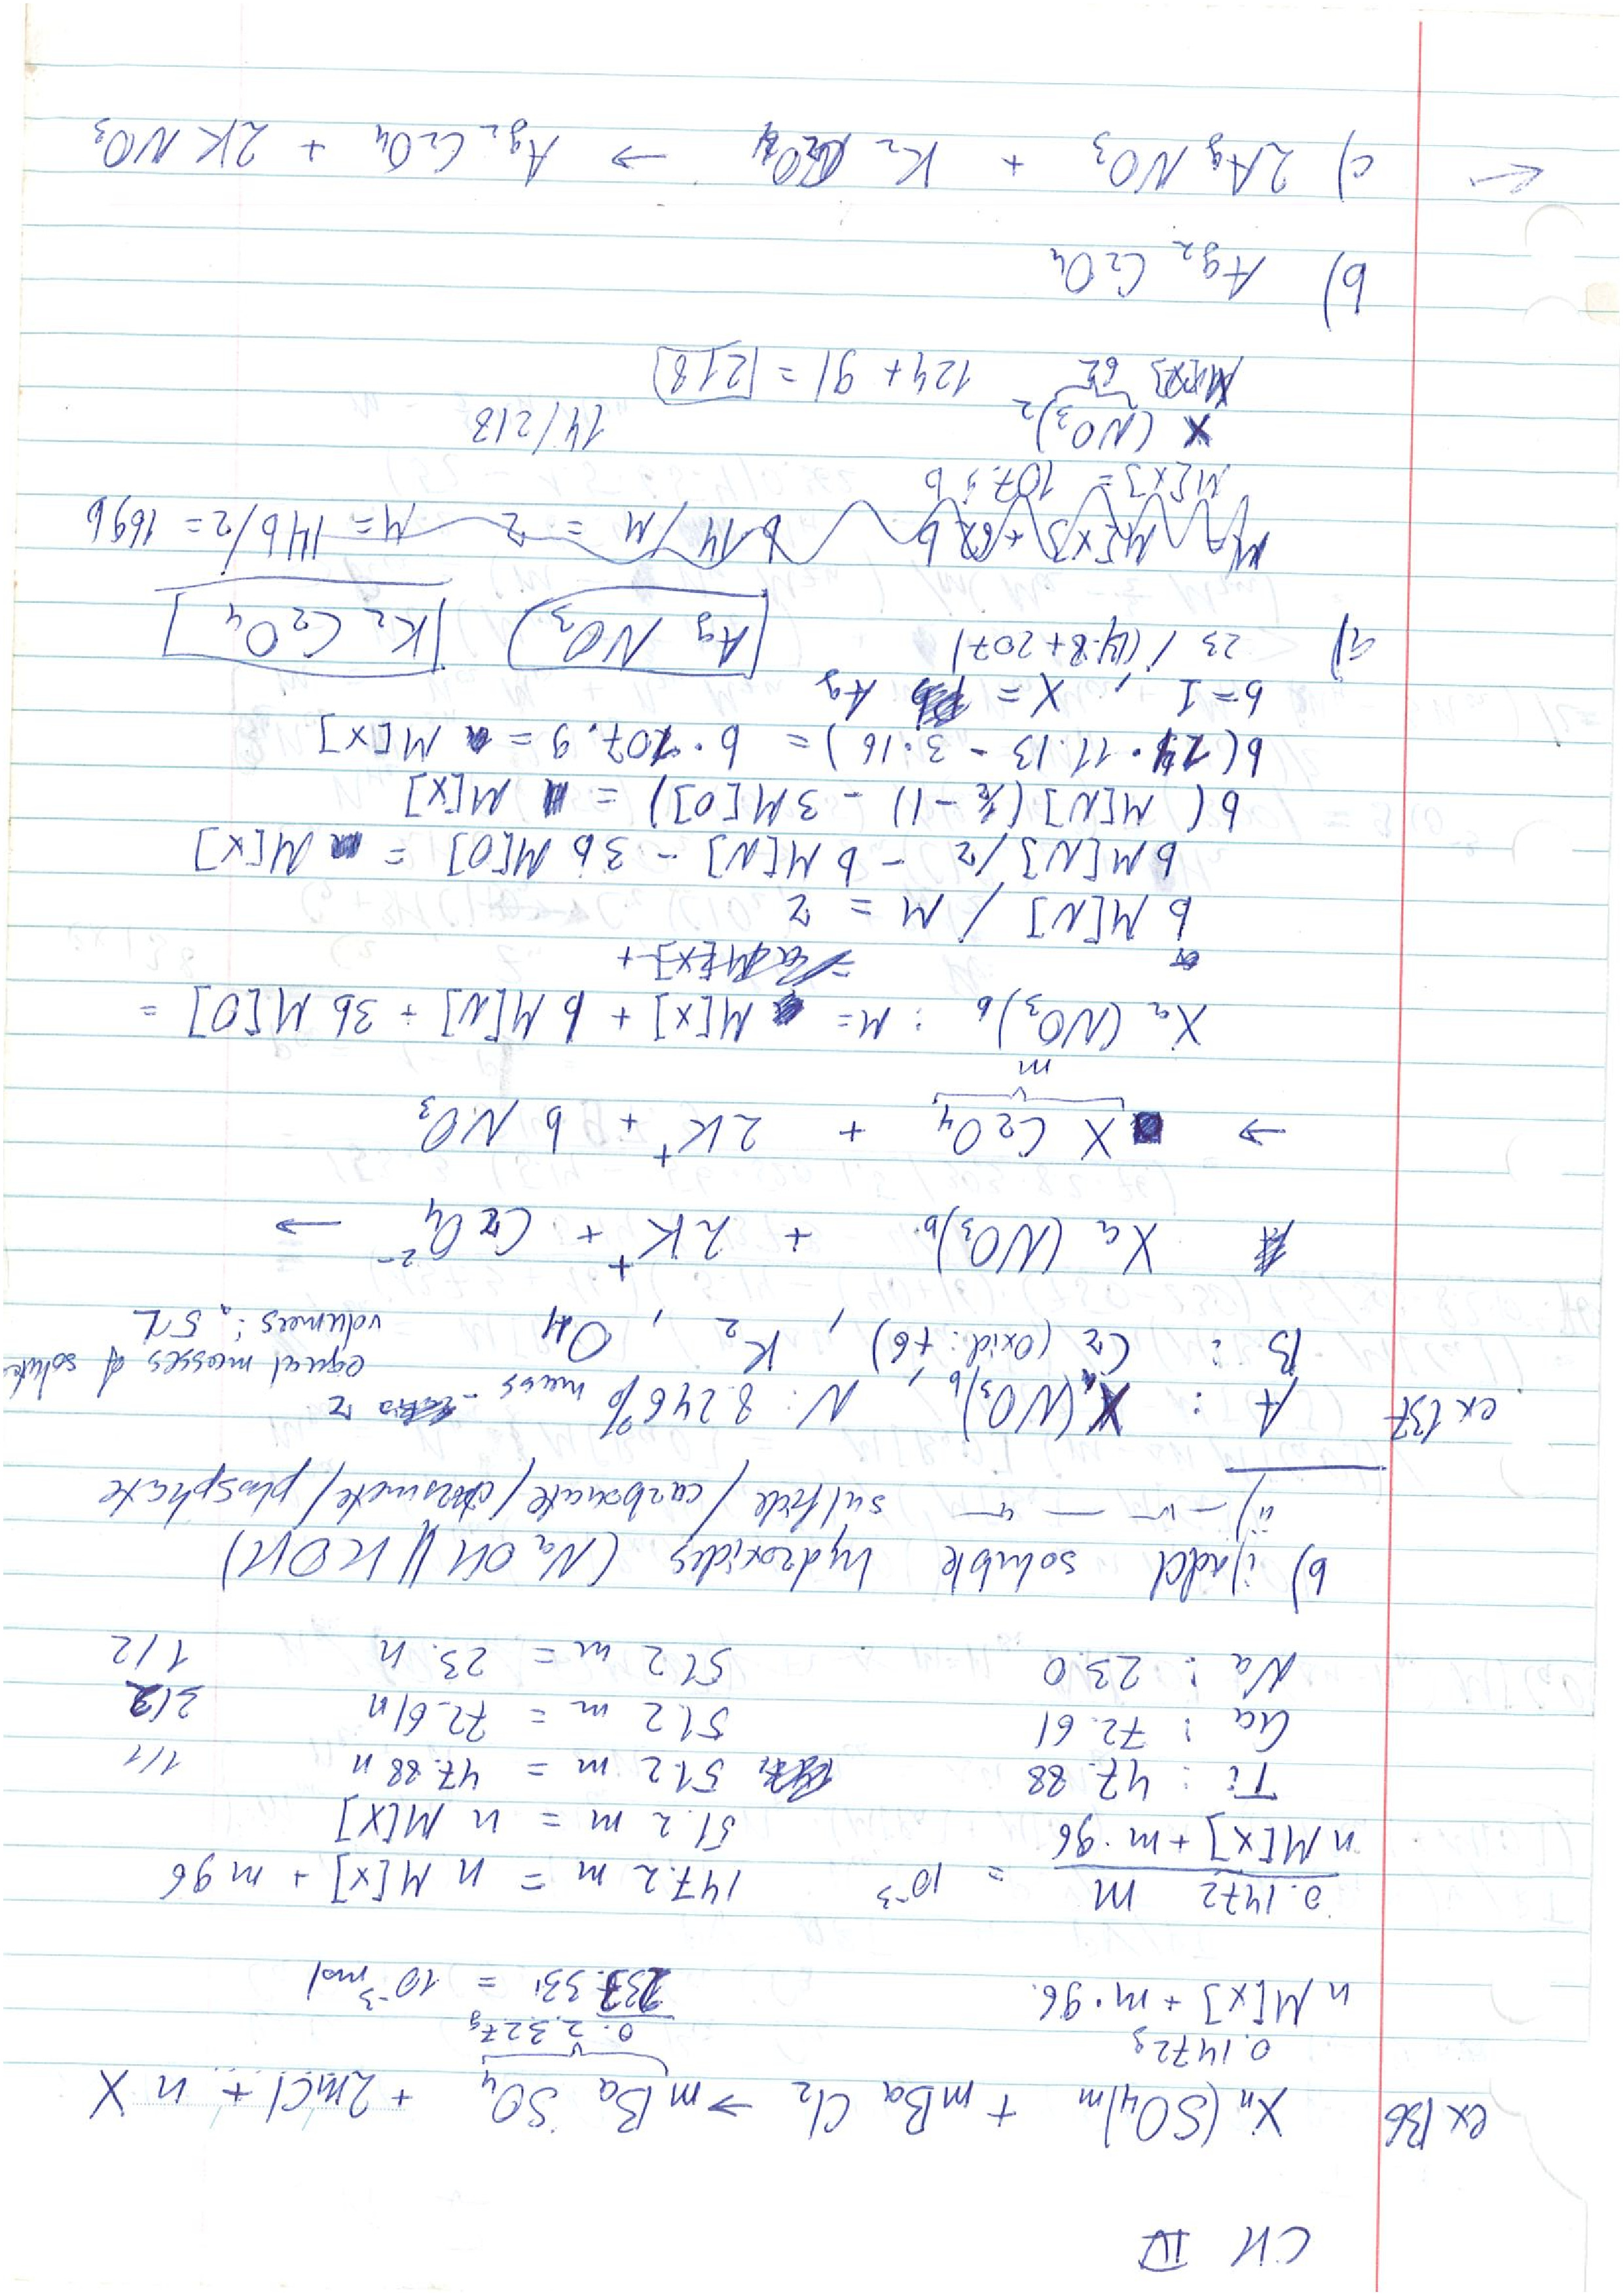 CH IV
ex 136 Xn(SO4)m + mBaCl2 → mBaSO4 + 2mCl + nX
0.1472g 0.2327g
n M[X] + m·96. 233.33 = 10^-3 mol
0.1472 m / n M[X] + m·96 = 10^-3 147.2 m = n M[X] + m 96
51.2 m = n M[X]
Ti : 47.88 51.2 m = 47.88 n 1/1
Ga : 72.61 51.2 m = 72.61 n 3/2
Na : 23.0 51.2 m = 23. n 1/2
b) i) add soluble hydroxides (NaOH || KOH)
ii) –"– — "– sulfide/carbonate/chromate/phosphate
ex 137 A : Xa(NO3)b, N: 8.246% mass - z equal masses of solute
B : Cr (oxid: +6), K2, O4 volumes: .5L
Xa(NO3)b + 2K+ + CrO4 2- →
→ X C2O4 + 2K+ + b NO3
m
Xa(NO3)b : M = M[X] + b M[N] + 3b M[O] =
= a M[X] +
b M[N] / M = z
b M[N]/z - b M[N] - 3b M[O] = M[X]
b( M[N] (1/z - 1) - 3M[O]) = M[X]
b(14·11.13 - 3·16) = b·107.9 = M[X]
b=1, X = Ag
a) 23 / (4.8+207) Ag NO3 K2 C2O4
M[X]+62b b14/M = z M = 14b/z = 169b
M[X] = 107.9b
X (NO3)2 14/218
M[X] 62 124 + 91 = 218
b) Ag2 C2O4
← c) 2AgNO3 + K2 C2O4 → Ag2 C2O4 + 2K NO3